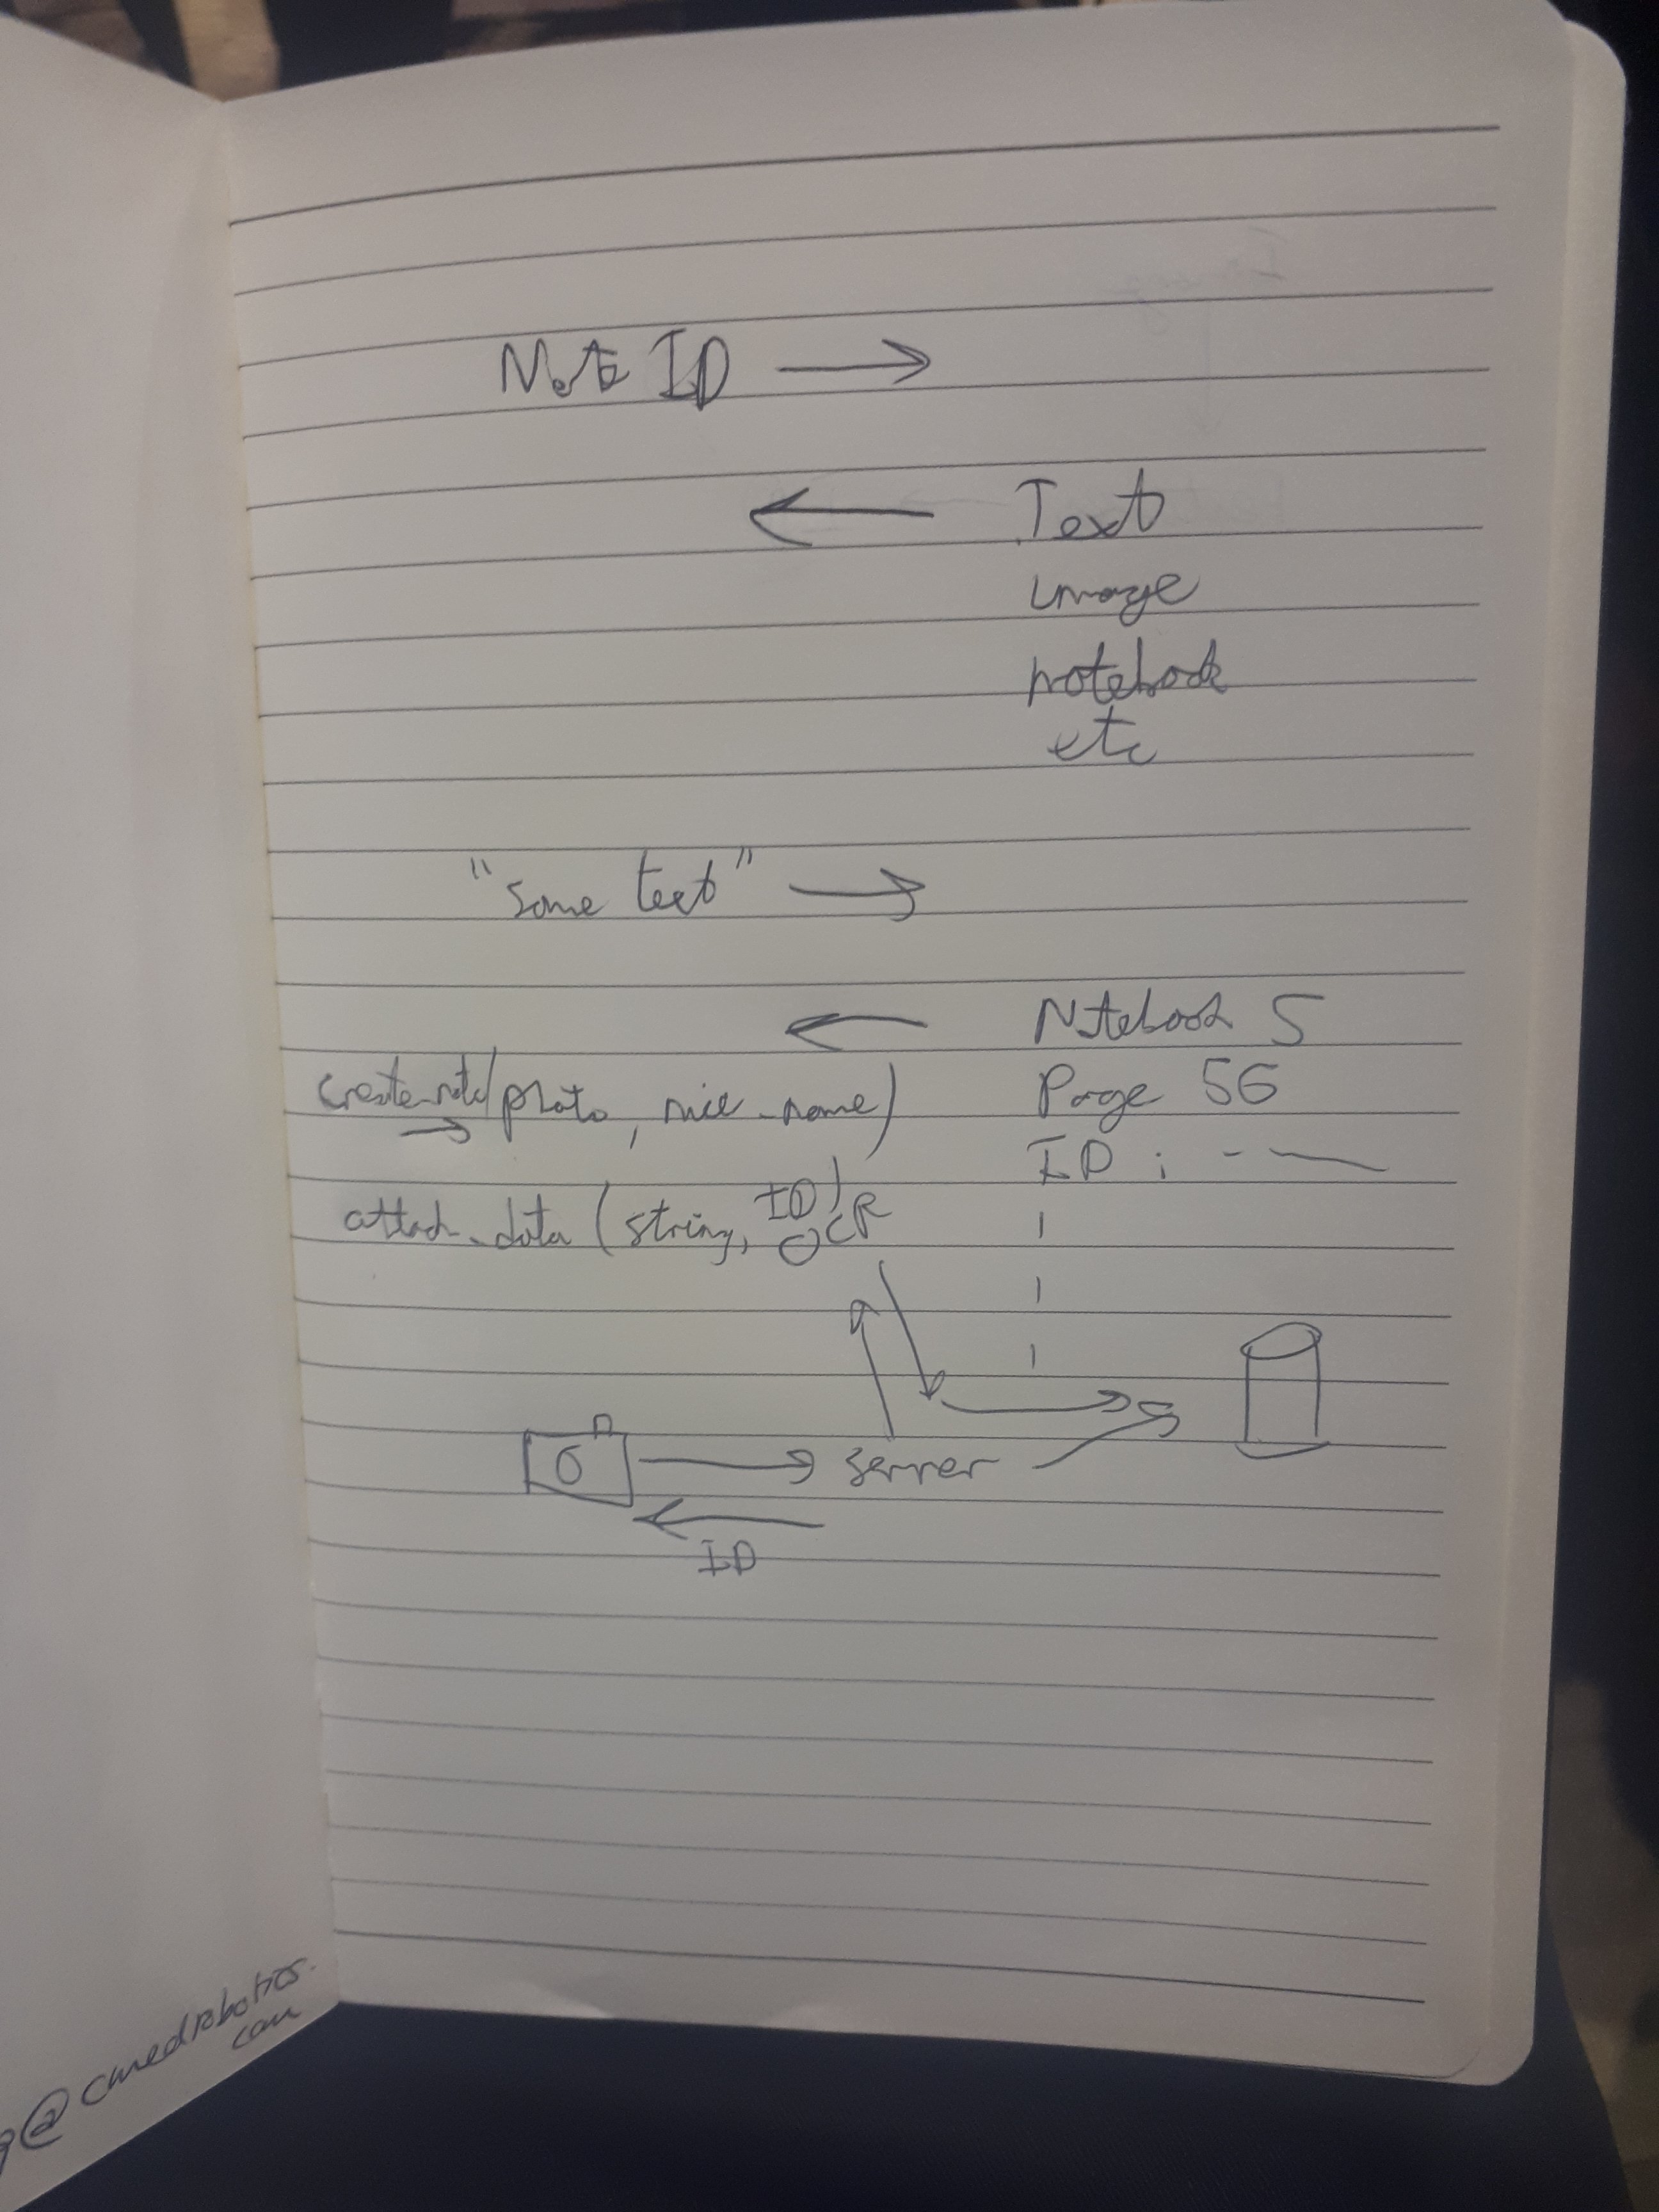 Note ID →
← Text
image
notebook
etc
"some text" →
← Notebook 5
Page 56
ID : - —
create_note(photo, nice_name)
→
attach_data (string, ID)
OCR
server
ID
@cmedrobotics.
com